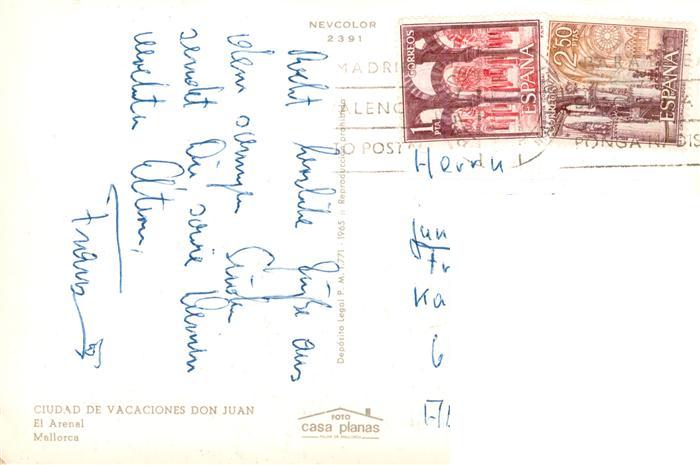 NEVCOLOR
2391
Recht herzliche Grüße aus
dem sonnigen Süden
sendet Dir sowie Deinen
Eltern,
Franz
Depósito Legal P. M. 1.771 - 1965 Reproducción prohibida
CORREOS
1 PTA
ESPAÑA
2,50 PTAS
ESPAÑA
MADRI
ALENC
TO POSTA
PONGA
DIS
Herrn
Jun
Fr
Ka
6
CIUDAD DE VACACIONES DON JUAN
El Arenal
Mallorca
FOTO
casa planas
PALMA DE MALLORCA